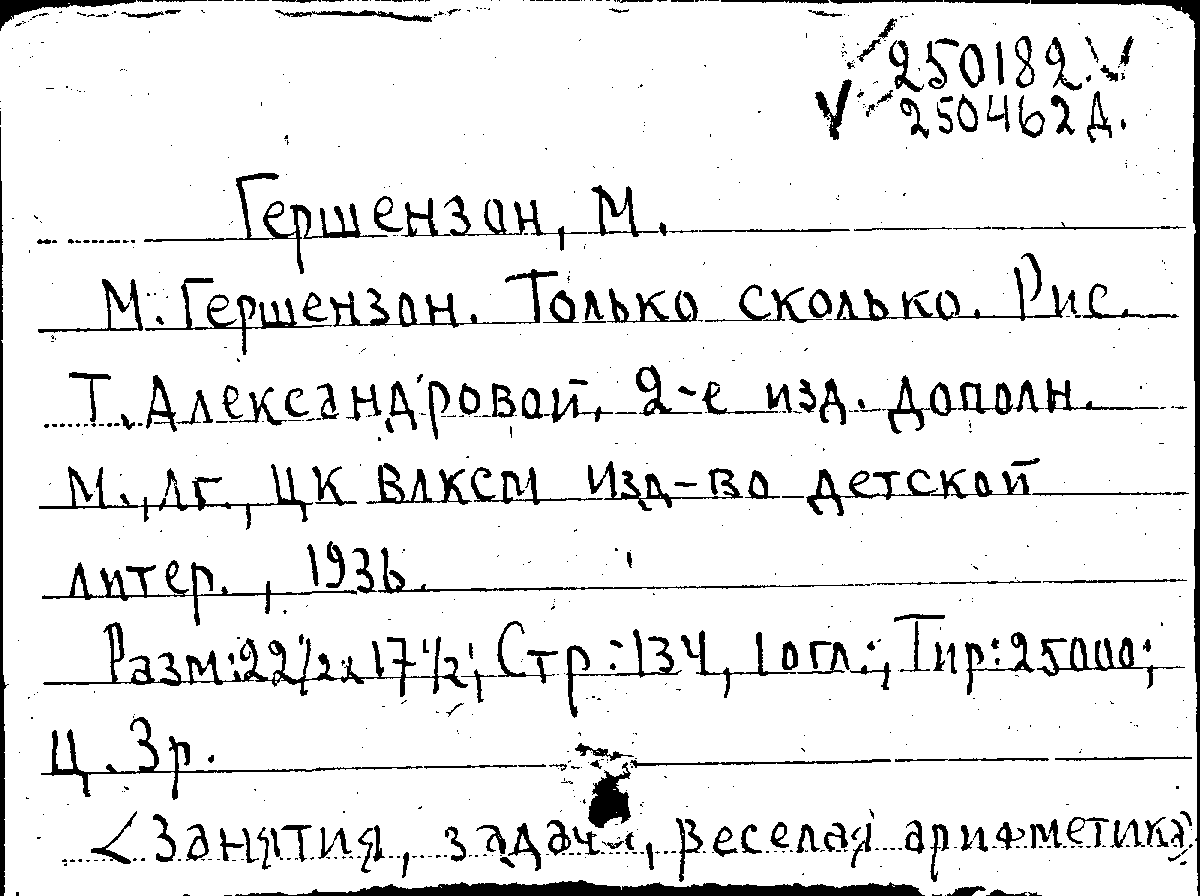 250182. V
V 250462 Д.
Гершензон, М.
М. Гершензон. Только сколько. Рис.
Т. Александровой. 2-е изд. дополн.
М., Лг., ЦК ВЛКСМ Изд-во детской
литер., 1936.
Разм: 22 1/2 x 17 1/2; Стр: 134, 1 огл.; Тир: 25000;
Ц. 3р.
<Занятия, задачи, веселая арифметика>